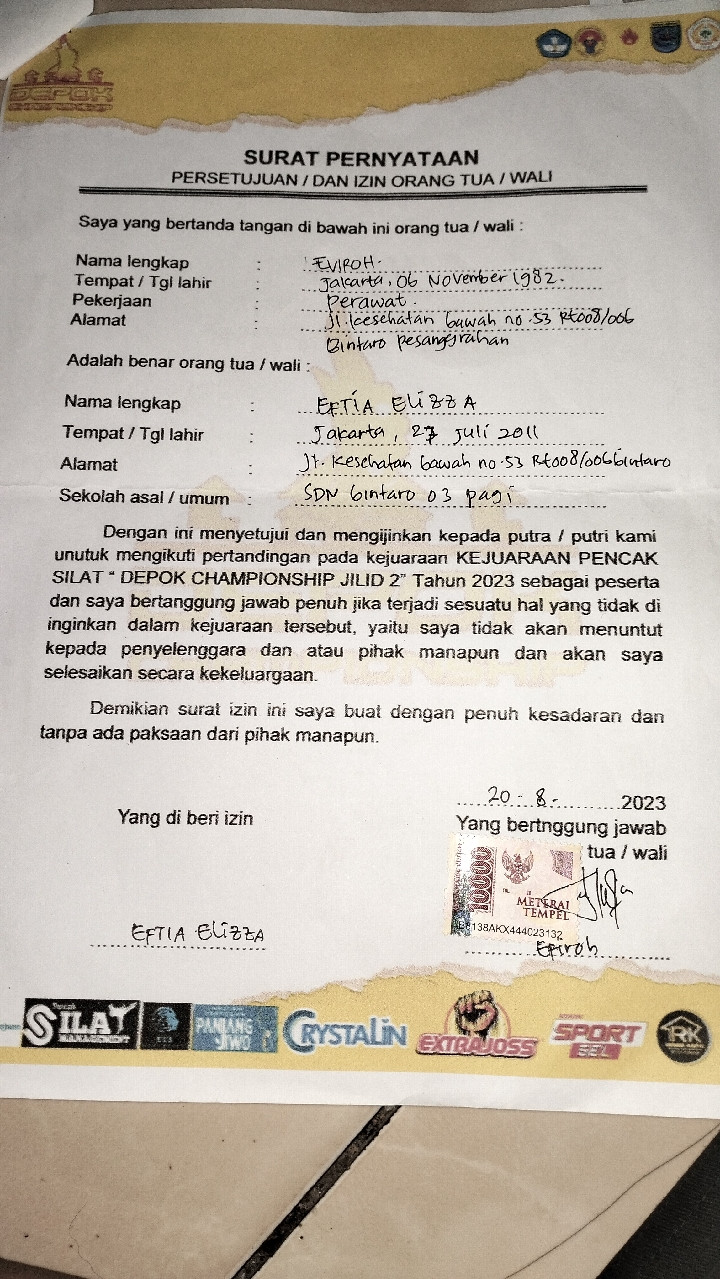 DEPOK
SURAT PERNYATAAN
PERSETUJUAN / DAN IZIN ORANG TUA / WALI
Saya yang bertanda tangan di bawah ini orang tua / wali :
Nama lengkap : EVIROH.
Tempat / Tgl lahir : Jakarta, 06 November 1982.
Pekerjaan : Perawat.
Alamat : Jl. kesehatan bawah no.53 Rt008/006
Bintaro pesanggrahan
Adalah benar orang tua / wali :
Nama lengkap : EFTIA ELIZZA
Tempat / Tgl lahir : Jakarta, 27 Juli 2011
Alamat : Jl. Kesehatan bawah no.53 Rt008/006 bintaro
Sekolah asal / umum : SDN bintaro 03 pagi
Dengan ini menyetujui dan mengijinkan kepada putra / putri kami
unutuk mengikuti pertandingan pada kejuaraan KEJUARAAN PENCAK
SILAT “ DEPOK CHAMPIONSHIP JILID 2” Tahun 2023 sebagai peserta
dan saya bertanggung jawab penuh jika terjadi sesuatu hal yang tidak di
inginkan dalam kejuaraan tersebut, yaitu saya tidak akan menuntut
kepada penyelenggara dan atau pihak manapun dan akan saya
selesaikan secara kekeluargaan.
Demikian surat izin ini saya buat dengan penuh kesadaran dan
tanpa ada paksaan dari pihak manapun.
20 - 8 - 2023
Yang di beri izin
Yang bertnggung jawab
tua / wali
10000
METERAI
TEMPEL
138AKX444023132
EFTIA ELIZZA
Efiroh
SILAT
MANAGEMENT
PANJANG
JIWO
CRYSTALIN
EXTRAJOSS
SPORT
RK